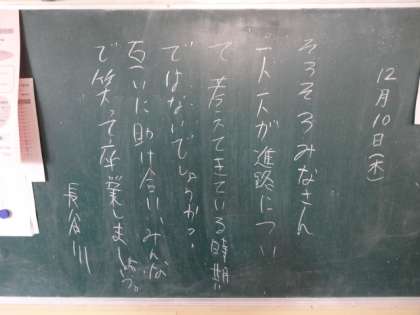 12月10日(木)
そろそろみなさん
一人一人が進路につい
て考えてきている時期
ではないでしょうか?
互いに助け合い、みんな
で笑って卒業しましょう。
長谷川